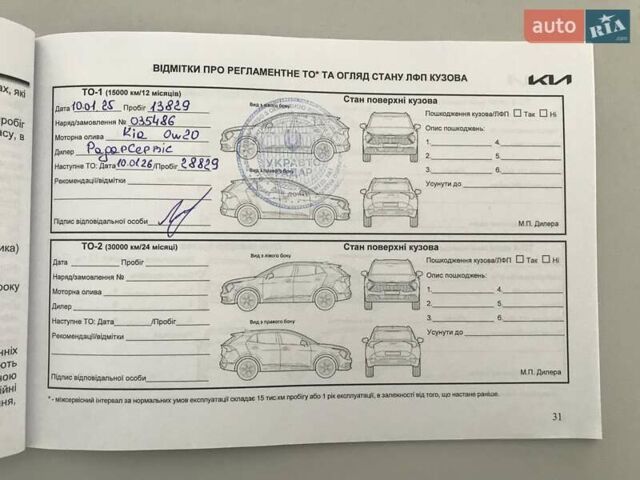 auto RIA .com
ах, які
ВІДМІТКИ ПРО РЕГЛАМЕНТНЕ ТО* ТА ОГЛЯД СТАНУ ЛФП КУЗОВА
KIA
ТО-1 (15000 км/12 місяців)
Дата 10.01.25 Пробіг 13829
Наряд/замовлення № 035486
Моторна олива Kia 0w20
Дилер РадарСервіс
Наступне ТО: Дата 10.01.26 /Пробіг 28829
Рекомендації/відмітки
Підпис відповідальної особи
Вид з лівого боку
УКРАВТО
Стан поверхні кузова
Пошкодження кузова/ЛФП Так Ні
Опис пошкоджень:
1. 4.
2. 5.
3. 6.
Усунути до
М.П. Дилера
ТО-2 (30000 км/24 місяці)
Дата Пробіг
Наряд/замовлення №
Моторна олива
Дилер
Наступне ТО: Дата /Пробіг
Рекомендації/відмітки
Підпис відповідальної особи
Вид з лівого боку
Вид з правого боку
Стан поверхні кузова
Пошкодження кузова/ЛФП Так Ні
Опис пошкоджень:
1. 4.
2. 5.
3. 6.
Усунути до
М.П. Дилера
* - міжсервісний інтервал за нормальних умов експлуатації складає 15 тис.км пробігу або 1 рік експлуатації, в залежності від того, що настане раніше.
31